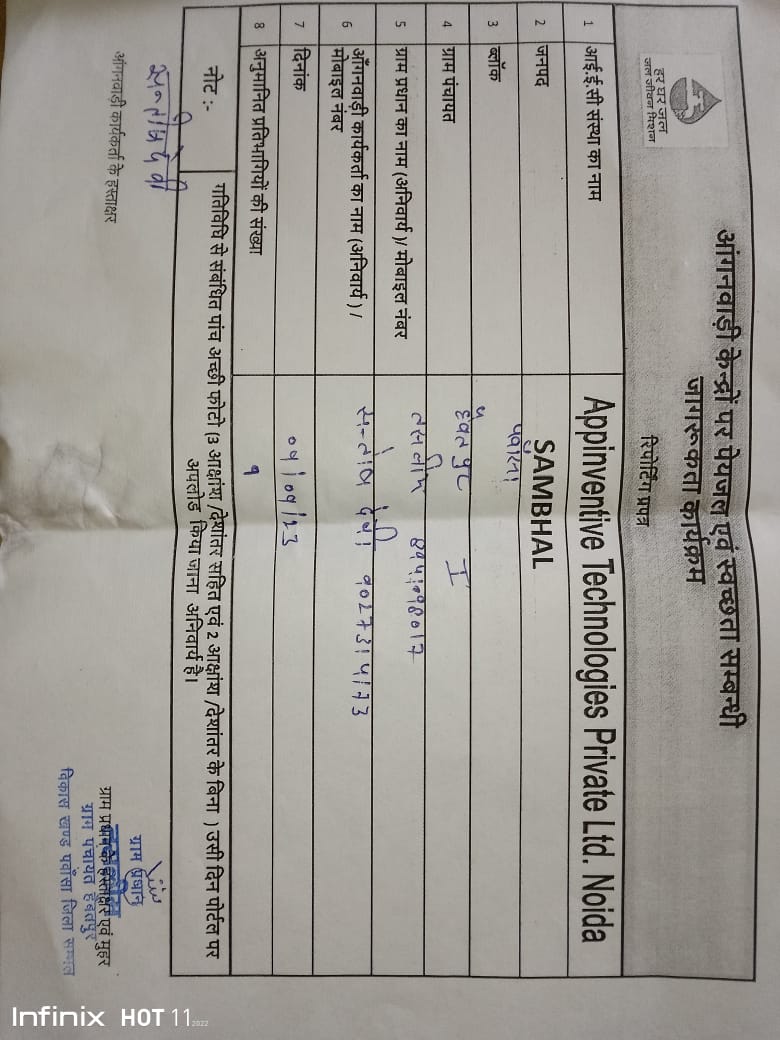 हर घर जल
जल जीवन मिशन
आंगनवाड़ी केन्द्रों पर पेयजल एवं स्वच्छता सम्बन्धी
जागरूकता कार्यक्रम
रिपोर्टिंग प्रपत्र
1 आई.ई.सी संस्था का नाम Appinventive Technologies Private Ltd. Noida
2 जनपद SAMBHAL
3 ब्लॉक पवांसा
4 ग्राम पंचायत हैवतपुर I
5 ग्राम प्रधान का नाम (अनिवार्य )/ मोबाइल नंबर तसलीम
6 आँगनवाड़ी कार्यकर्ता का नाम (अनिवार्य ) /
मोबाइल नंबर सन्तोष देवी
7 दिनांक
8 अनुमानित प्रतिभागियों की संख्या
नोट :- गतिविधि से संबंधित पांच अच्छी फोटो (3 आक्षांश /देशांतर सहित एवं 2 आक्षांश /देशांतर के बिना ) उसी दिन पोर्टल पर
अपलोड किया जाना अनिवार्य है।
सन्तोष देवी
आंगनवाड़ी कार्यकर्ता के हस्ताक्षर
ग्राम प्रधान
ग्राम प्रधान के हस्ताक्षर एवं मुहर
ग्राम पंचायत हैबतपुर
विकास खण्ड पवाँसा जिला सम्भल
Infinix HOT 11 2022